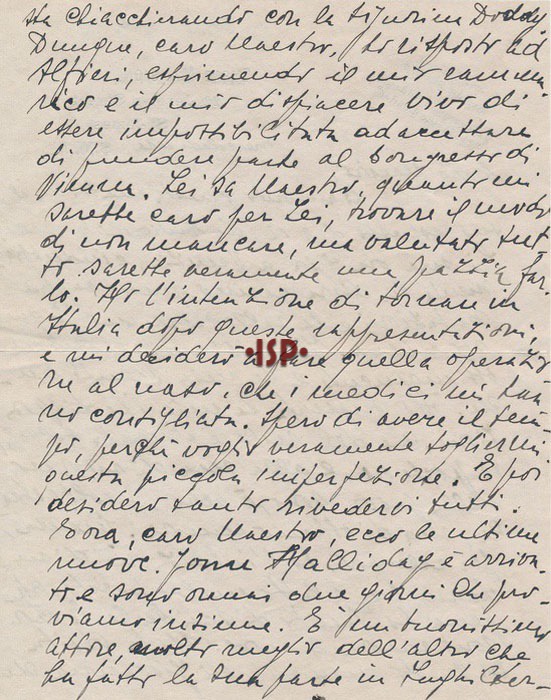 sta chiacchierando con la signorina Doddy
Dunque, caro Maestro, ho risposto ad
Alfieri, esprimendo il mio ramma
rico e il mio dispiacere vivo di
essere impossibilitata ad accettare
di prendere parte al Congresso di
Vienna. Lei sa Maestro, quanto mi
sarebbe caro per Lei, trovare il modo
di non mancare, ma valutato tut
to sarebbe veramente una pazzia far
lo. Ho l'intenzione di tornare in
Italia dopo queste rappresentazioni,
e mi deciderò a fare quella operazio
ne al naso, che i medici mi han
no consigliata. Spero di avere il tem
po, perchè voglio veramente togliermi
questa piccola imperfezione. E poi
desidero tanto rivedervi tutti.
Ora, caro Maestro, ecco le ultime
nuove. John Halliday è arriva
to e sono ormai due giorni che pro-
viamo insieme. È un buonissimo
attore, molto meglio dell'altro che
ha fatto la sua parte in Inghilter-
•ISP•